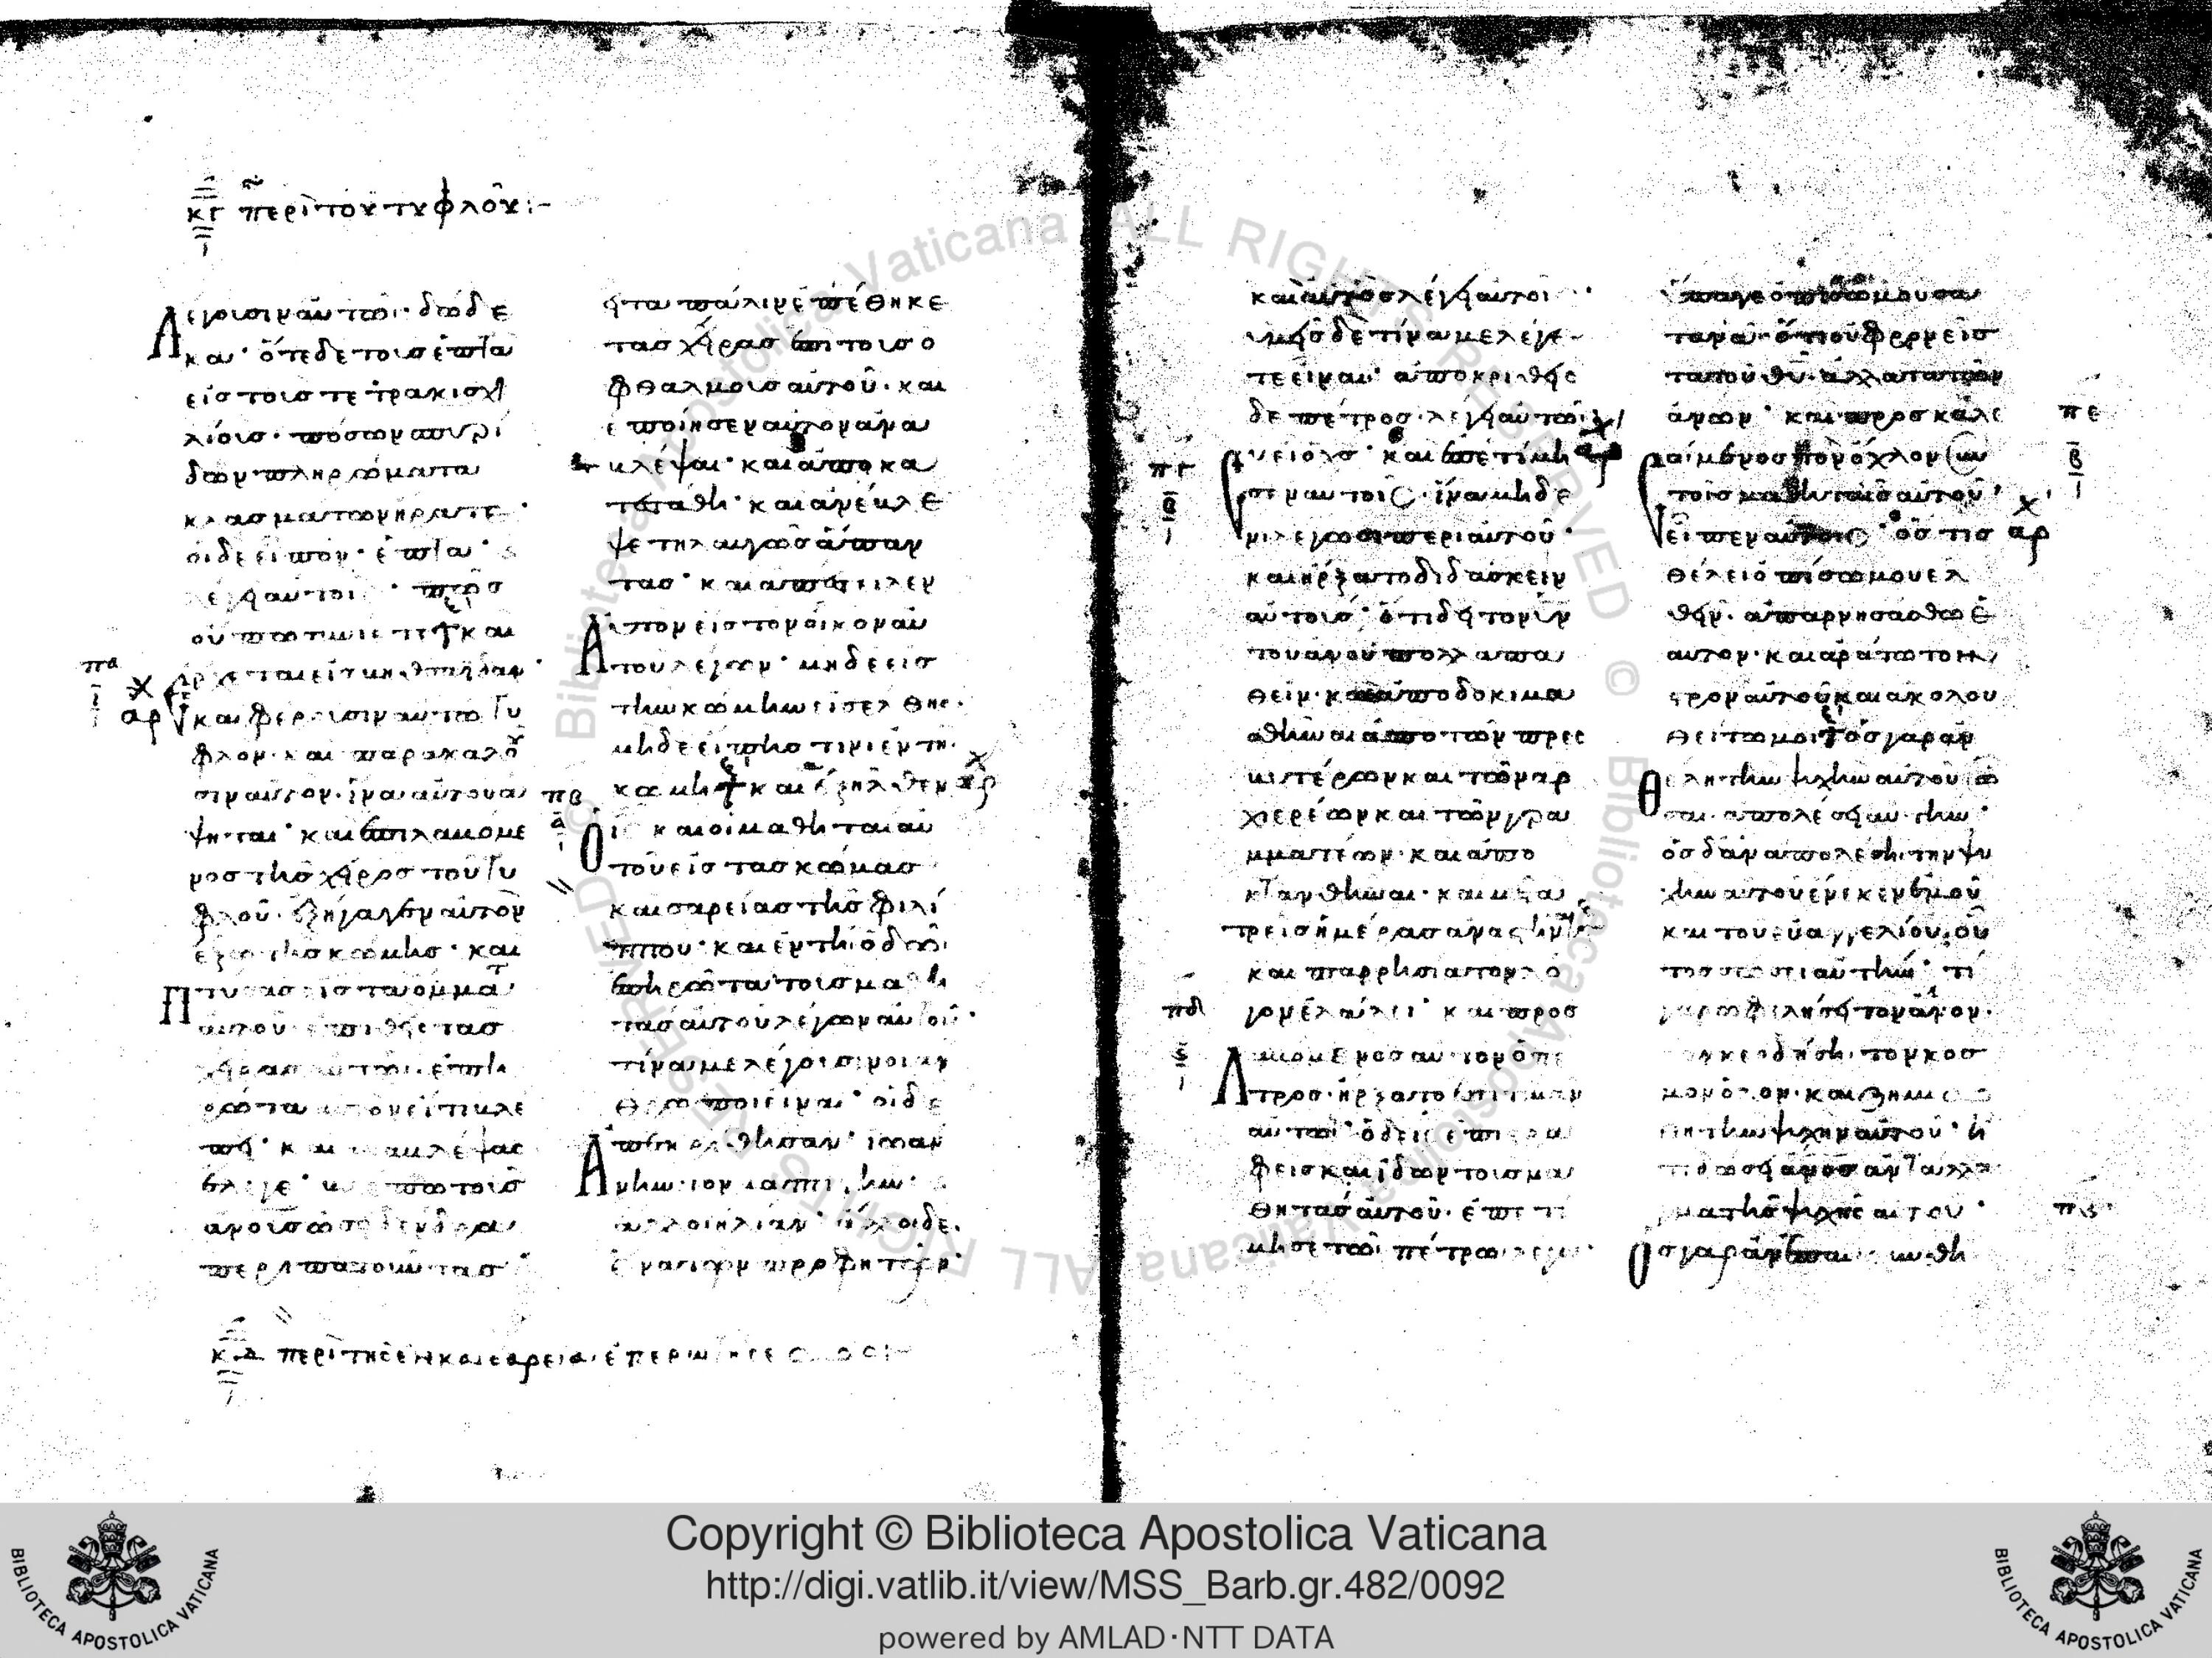 κγ περὶ τοῦ τυφλοῦ:-
Λέγουσιν αὐτῶ· δώδε
κα· ὅτε δὲ τοὺς ἑπτὰ
εἰς τοὺς τετρακισχι
λίους· πόσων σπυρί
δων πληρώματα
κλασμάτων ἤρατε·
οἱ δὲ εἶπον· ἑπτά·
λέγει αὐτοῖς· πῶς
οὔπω συνίετε καὶ
πα
ἔρχεται εἰς βηθσαϊδαν·
αρ
καὶ φέρουσιν αὐτῶ τυ
φλον· καὶ παρακαλοῦ
σιν αὐτὸν· ἵνα αὐτοῦ ἅ
ψηται· καὶ ἐπιλαβόμε
νος τῆς χειρὸς τοῦ τυ
φλοῦ· ἐξήγαγεν αὐτὸν
ἔξω τῆς κώμης· καὶ
Πτύσας εἰς τὰ ὄμματα
αὐτοῦ ἐπιθεὶς τὰς
χεῖρας αὐτῶ· ἐπη
ρώτα αὐτὸν εἴ τι βλέ
πει· καὶ ἀναβλέψας
ἔλεγε· βλέπω τοὺς
ανους ὡς δένδρα
περιπατοῦντας·
εἶτα πάλιν ἐπέθηκε
τὰς χεῖρας ἐπὶ τοὺς ὀ
φθαλμοὺς αὐτοῦ· καὶ
ἐποίησεν αὐτὸν ἀνα
βλέψαι· καὶ ἀποκα
τεστάθη· καὶ ἀνέβλε
ψε τηλαυγῶς ἅπαν
τας· καὶ ἀπέστειλεν
Αὐτὸν εἰς τὸν οἶκον αὐ
τοῦ λέγων· μηδὲ εἰς
τὴν κώμην εἰσέλθης·
μηδὲ εἴπης τινὶ ἐν τῆ
κώμη καὶ ἐξῆλθεν
αρ
πβ
α
Ὁ ις καὶ οἱ μαθηταὶ αὐ
τοῦ εἰς τὰς κώμας
καισαρείας τῆς φιλί
ππου· καὶ ἐν τῆ ὁδῶ
ἐπηρώτα τοὺς μαθη
τὰς αὐτοῦ λέγων αὐτοῖς·
τίνα με λέγουσιν οἱ αν
οι εἶναι· οἱ δὲ
Ἀπεκρίθησαν· ιωαν
νην τὸν βαπτιστήν·
ἄλλοι ηλίαν· ἄλλοι δε·
ἕνα τῶν προφητῶν·
κδ περὶ τῆς ἐν καισαρεία ἐπερωτήσεως:-
καὶ αὐτὸς λέγει αὐτοῖς·
ὑμεῖς δὲ τίνα με λέγε
τε εἶναι· ἀποκριθεὶς
δὲ πέτρος λέγει αὐτῶ·
πγ
σὺ εἶ ὁ χς· καὶ ἐπετίμη
αρ
σεν αὐτοῖς· ἵνα μηδε
νὶ λέγωσι περὶ αὐτοῦ·
καὶ ἤρξατο διδάσκειν
αὐτοὺς· ὅτι δεῖ τὸν υν
τοῦ ανου πολλὰ πα
θεῖν· καὶ ἀποδοκιμα
σθῆναι ἀπὸ τῶν πρεσ
βυτέρων καὶ τῶν αρ
χιερέων καὶ τῶν γρα
μματέων· καὶ ἀπο
κτανθῆναι· καὶ μετὰ
τρεῖς ἡμέρας ἀναστῆναι
καὶ παρρησία τὸν λό
πδ
γον ἐλάλει· καὶ προσ
ς
Λαβόμενος αὐτὸν ὁ πέ
τρος· ἤρξατο ἐπιτιμᾶν
αὐτῶ· ὁ δὲ ἐπιστρα
φεὶς καὶ ἰδὼν τοὺς μα
θητὰς αὐτοῦ· ἐπετί
μησε τῶ πέτρω λέγων·
ὕπαγε ὀπίσω μου σα
τανᾶ· ὅτι οὐ φρονεῖς
τὰ τοῦ θυ· ἀλλὰ τὰ τῶν
ανων· καὶ προσκαλε
πε
σάμενος τὸν ὄχλον συν
β
τοῖς μαθηταῖς αὐτοῦ·
εἶπεν αὐτοῖς· ὅστις
αρ
θέλει ὀπίσω μου ἐλ
θεῖν· ἀπαρνησάσθω ἑ
αυτὸν· καὶ ἀράτω τὸν
σταυρὸν αὐτοῦ καὶ ἀκολου
θείτω μοι ὃς γὰρ ἂν
Θέλη τὴν ψυχὴν αὐτοῦ σῶ
σαι ἀπολέσει αὐτήν·
ὃς δ' ἂν ἀπολέση τὴν ψυ
χὴν αὐτοῦ ἕνεκεν ἐμοῦ
καὶ τοῦ εὐαγγελίου· οὗ
τος σώσει αὐτήν· τί
γὰρ ὠφελήσει τὸν ανον·
ἐὰν κερδήση τὸν κόσ
μον ὅλον· καὶ ζημιω
θῆ τὴν ψυχὴν αὐτοῦ· ἢ
τί δώσει ανος ἀντάλλα
γμα τῆς ψυχῆς αὐτοῦ·
πς
Ὃς γὰρ ἂν ἐπαισχυνθῆ
Copyright © Biblioteca Apostolica Vaticana
http://digi.vatlib.it/view/MSS_Barb.gr.482/0092
powered by AMLAD·NTT DATA
BIBLIOTECA APOSTOLICA VATICANA
BIBLIOTECA APOSTOLICA VATICANA